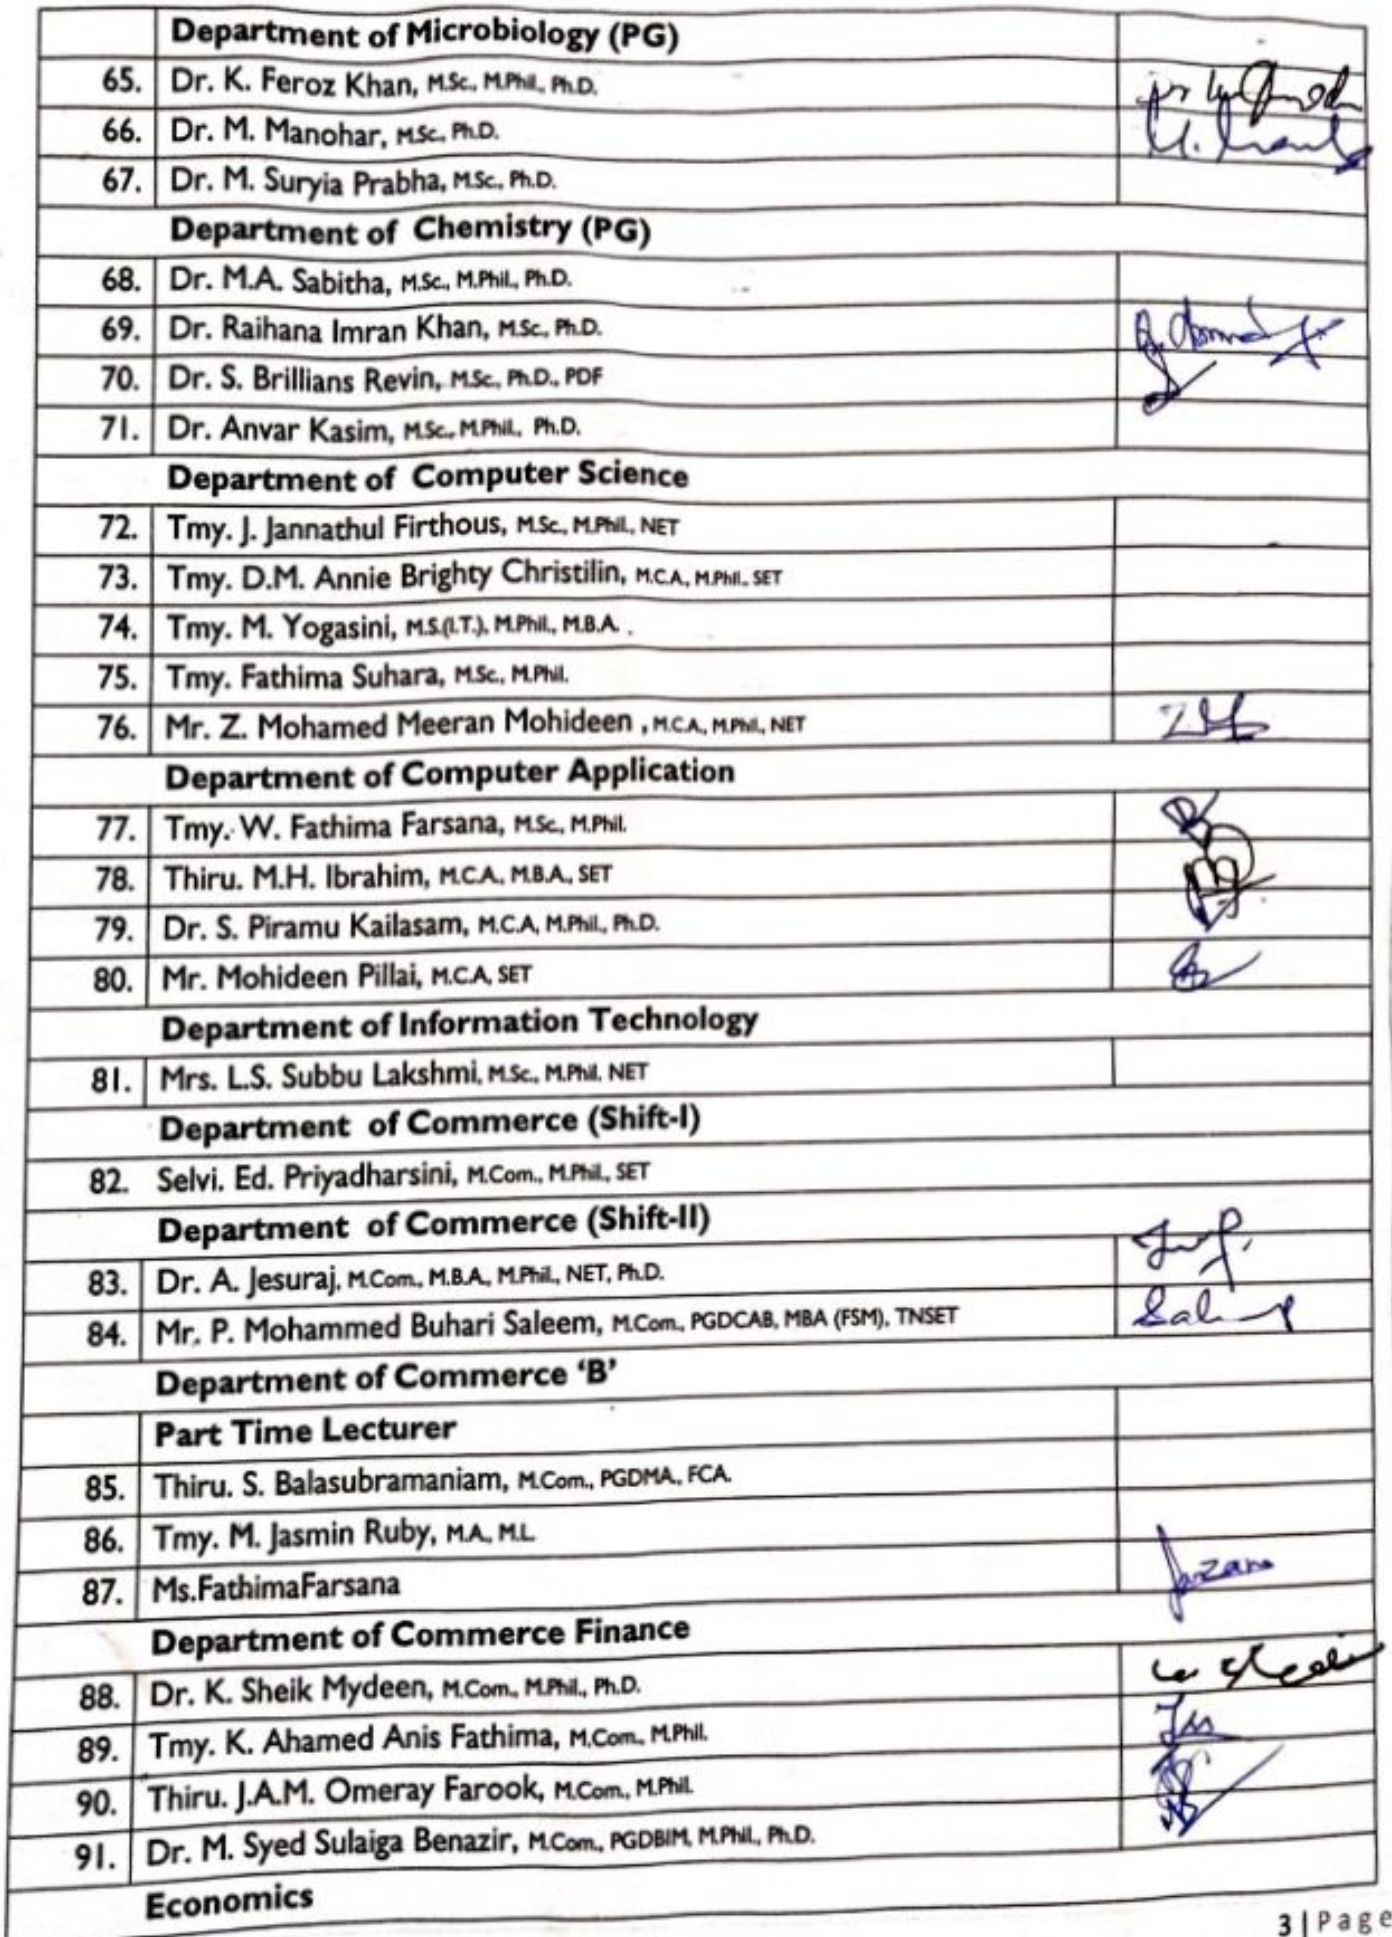 Department of Microbiology (PG)
65. Dr. K. Feroz Khan, M.Sc., M.Phil., Ph.D.
66. Dr. M. Manohar, M.Sc., Ph.D.
67. Dr. M. Suryia Prabha, M.Sc., Ph.D.
Department of Chemistry (PG)
68. Dr. M.A. Sabitha, M.Sc., M.Phil., Ph.D.
69. Dr. Raihana Imran Khan, M.Sc., Ph.D.
70. Dr. S. Brillians Revin, M.Sc., Ph.D., PDF
71. Dr. Anvar Kasim, M.Sc., M.Phil., Ph.D.
Department of Computer Science
72. Tmy. J. Jannathul Firthous, M.Sc., M.Phil., NET
73. Tmy. D.M. Annie Brighty Christilin, M.C.A., M.Phil., SET
74. Tmy. M. Yogasini, M.S.(I.T.), M.Phil., M.B.A.
75. Tmy. Fathima Suhara, M.Sc., M.Phil.
76. Mr. Z. Mohamed Meeran Mohideen , M.C.A., M.Phil., NET
Department of Computer Application
77. Tmy. W. Fathima Farsana, M.Sc., M.Phil.
78. Thiru. M.H. Ibrahim, M.C.A., M.B.A., SET
79. Dr. S. Piramu Kailasam, M.C.A, M.Phil., Ph.D.
80. Mr. Mohideen Pillai, M.C.A, SET
Department of Information Technology
81. Mrs. L.S. Subbu Lakshmi, M.Sc., M.Phil. NET
Department of Commerce (Shift-I)
82. Selvi. Ed. Priyadharsini, M.Com., M.Phil., SET
Department of Commerce (Shift-II)
83. Dr. A. Jesuraj, M.Com., M.B.A., M.Phil., NET, Ph.D.
84. Mr. P. Mohammed Buhari Saleem, M.Com., PGDCAB, MBA (FSM), TNSET
Department of Commerce ‘B’
Part Time Lecturer
85. Thiru. S. Balasubramaniam, M.Com., PGDMA., FCA.
86. Tmy. M. Jasmin Ruby, M.A., M.L.
87. Ms.FathimaFarsana
Department of Commerce Finance
88. Dr. K. Sheik Mydeen, M.Com., M.Phil., Ph.D.
89. Tmy. K. Ahamed Anis Fathima, M.Com., M.Phil.
90. Thiru. J.A.M. Omeray Farook, M.Com., M.Phil.
91. Dr. M. Syed Sulaiga Benazir, M.Com., PGDBIM, M.Phil., Ph.D.
Economics
3 | Page